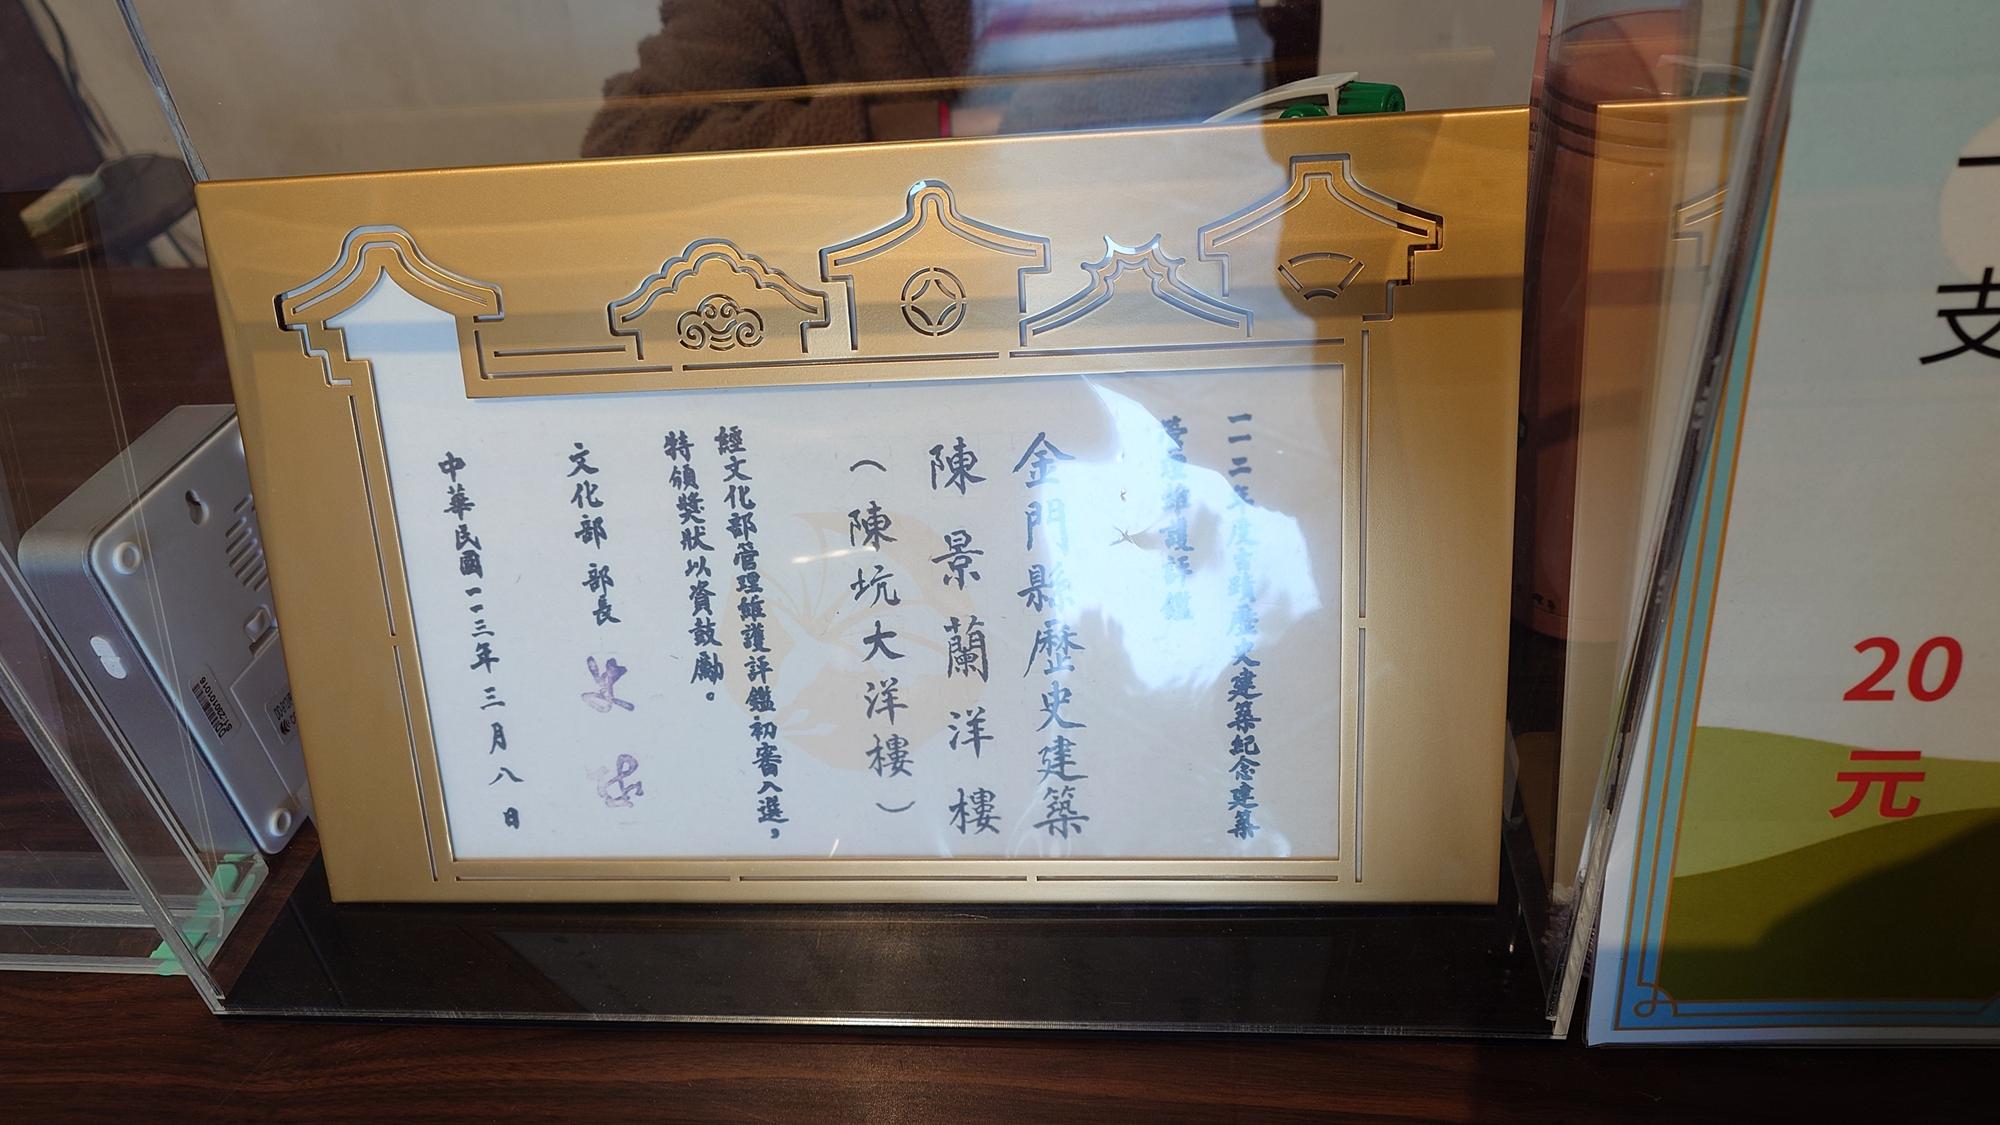 一一二年度古蹟歷史建築紀念建築
管理維護評鑑
金門縣歷史建築
陳景蘭洋樓
（陳坑大洋樓）
經文化部管理維護評鑑初審入選，
特頒獎狀以資鼓勵。
文化部 部長 史哲
中華民國一一三年三月八日
支
20
元